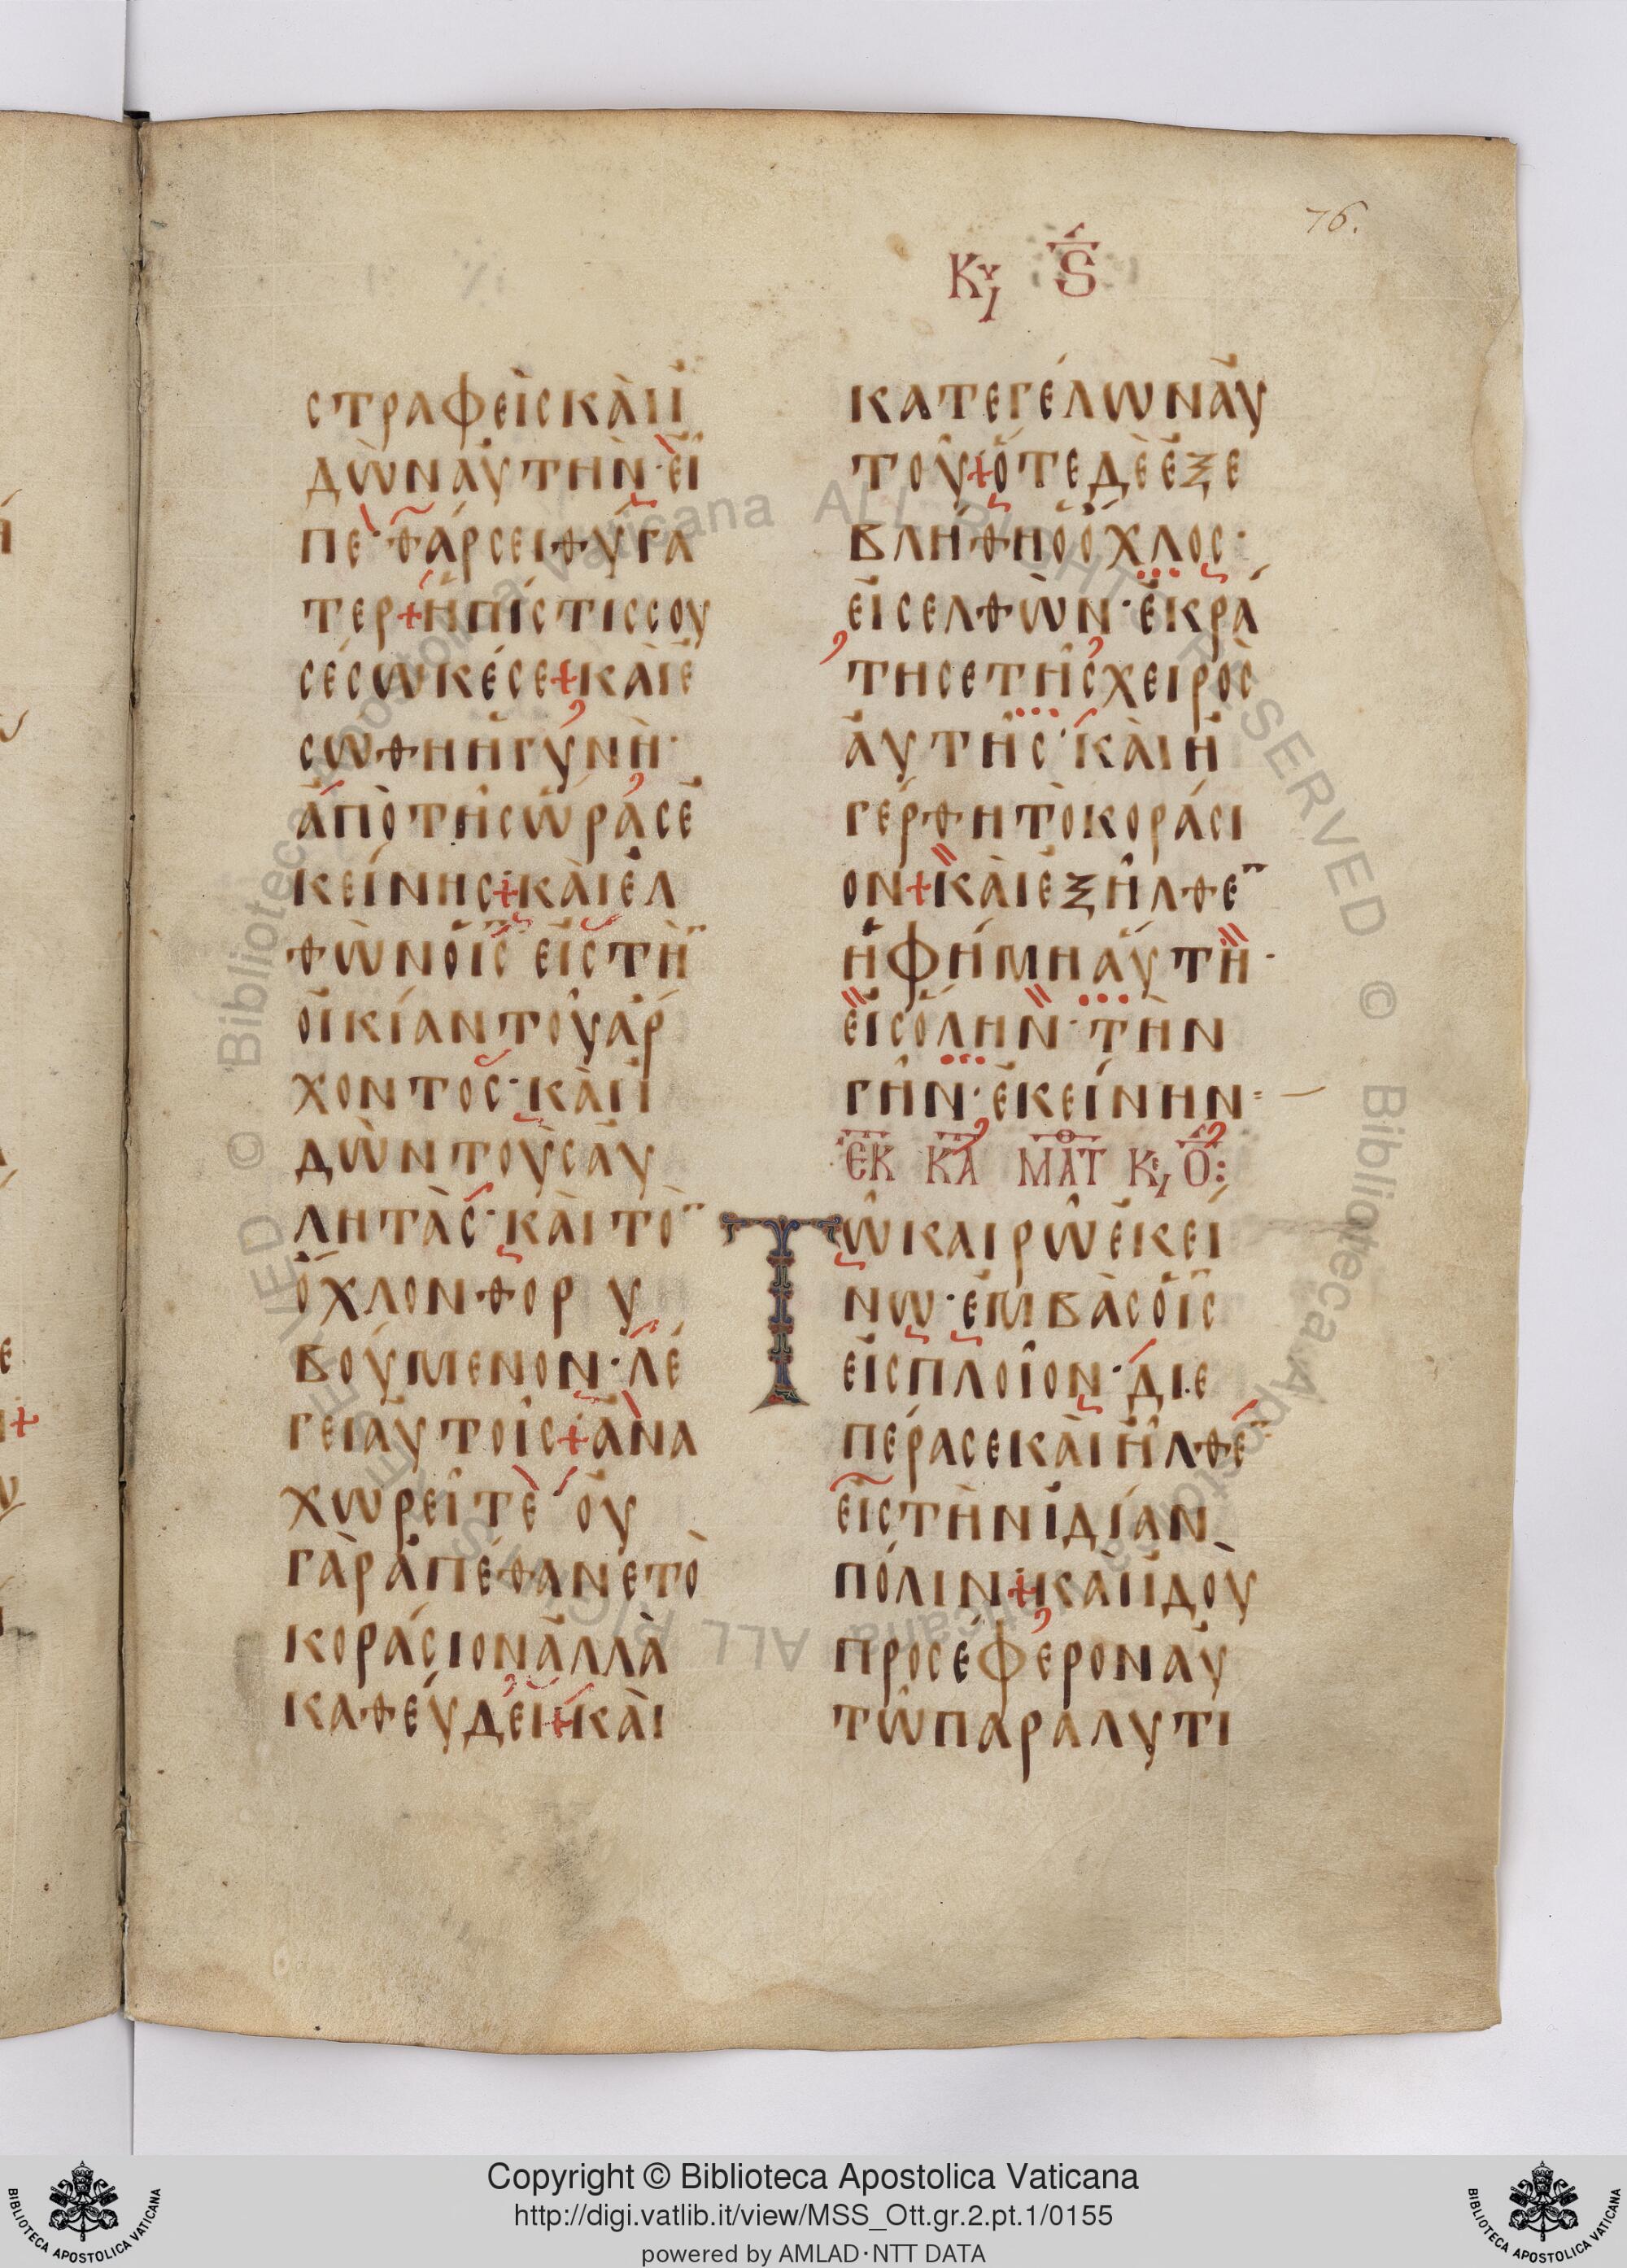 76.
Κυ Ϛ
στραφεὶς κὰι ἰ
δὼν ἀυτὴν · εἶ
πε · θάρσει θύγα
τερ + ἡ πίστις σου
σέσωκέ σε + κὰι ἐ
σώθη ἡ γυνὴ ·
ἀπὸ τῆς ὥρας ἐ
κείνης + κὰι ἐλ
θὼν ὁ ις εἰς τὴ̄
οἰκίαν τοῦ ἄρ
χοντος · κὰι ἰ
δὼν τοὺς ἀυ
λητὰς · κὰι τὸ̄
ὄχλον θορυ
βούμενον · λέ
γει ἀυτοῖς + ἀνα
χωρεῖτε · οὐ
γὰρ ἀπέθανε τὸ
κοράσιον ἀλλὰ
καθέυδει + κὰι
κατεγέλων ἀυ
τοῦ + ὅτε δὲ ἐξε
βλήθη ὁ ὄχλος ·
εἰσελθὼν · ἐκρά
τησε τῆς χειρὸς
ἀυτῆς · κὰι ἠ
γέρθη τὸ κοράσι
ον + κὰι ἐξῆλθε̄
ἡ φήμη ἀυτη ·
εἰς ὅλην · τὴν
γῆν · ἐκείνην
ἘΚ ΚΑ ΜΑΤ Κε Ο :
Τῶ καιρῶ ἐκεί
νω · ἐμβὰς ὁ ις
εἰς πλοῖον · διε
πέρασε κὰι ἦλθε̄
εἰς τὴν ἰδίαν
πόλιν + κὰι ἰδοὺ
προσέφερον ἀυ
τῶ παραλυτι
© Biblioteca Apostolica Vaticana ALL RIGHTS RESERVED
© Biblioteca Apostolica Vaticana ALL RIGHTS RESERVED
Copyright © Biblioteca Apostolica Vaticana
http://digi.vatlib.it/view/MSS_Ott.gr.2.pt.1/0155
powered by AMLAD·NTT DATA
BIBLIOTECA APOSTOLICA VATICANA
BIBLIOTECA APOSTOLICA VATICANA